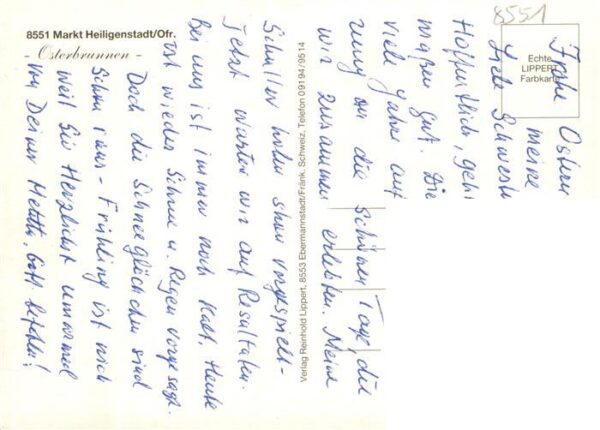 8551 Markt Heiligenstadt/Ofr.
- Osterbrunnen -
8551
Echte
LIPPERT
Farbkarte
Verlag Reinhold Lippert, 8553 Ebermannstadt/Fränk. Schweiz, Telefon 09194/9514
Frohe Ostern
meine
Liebe Schwest
Hoffentlich, geht
maßen gut. Die
viele Jahre auf
rung an die Schönen Tage, die
wir zusammen erlebten. Meine
Schüller haben schon vorgespielt-
Jetzt warten wir auf Resultaten.
Bei uns ist immer noch Kalt. Heute
ist wieder Schnee u. Regen vorgesagt.
Doch die Schneeglöckchen sind
Schon raus - Frühling ist nich
weit Sie Herzlichst umarmt
von Deiner Gott befohlen!